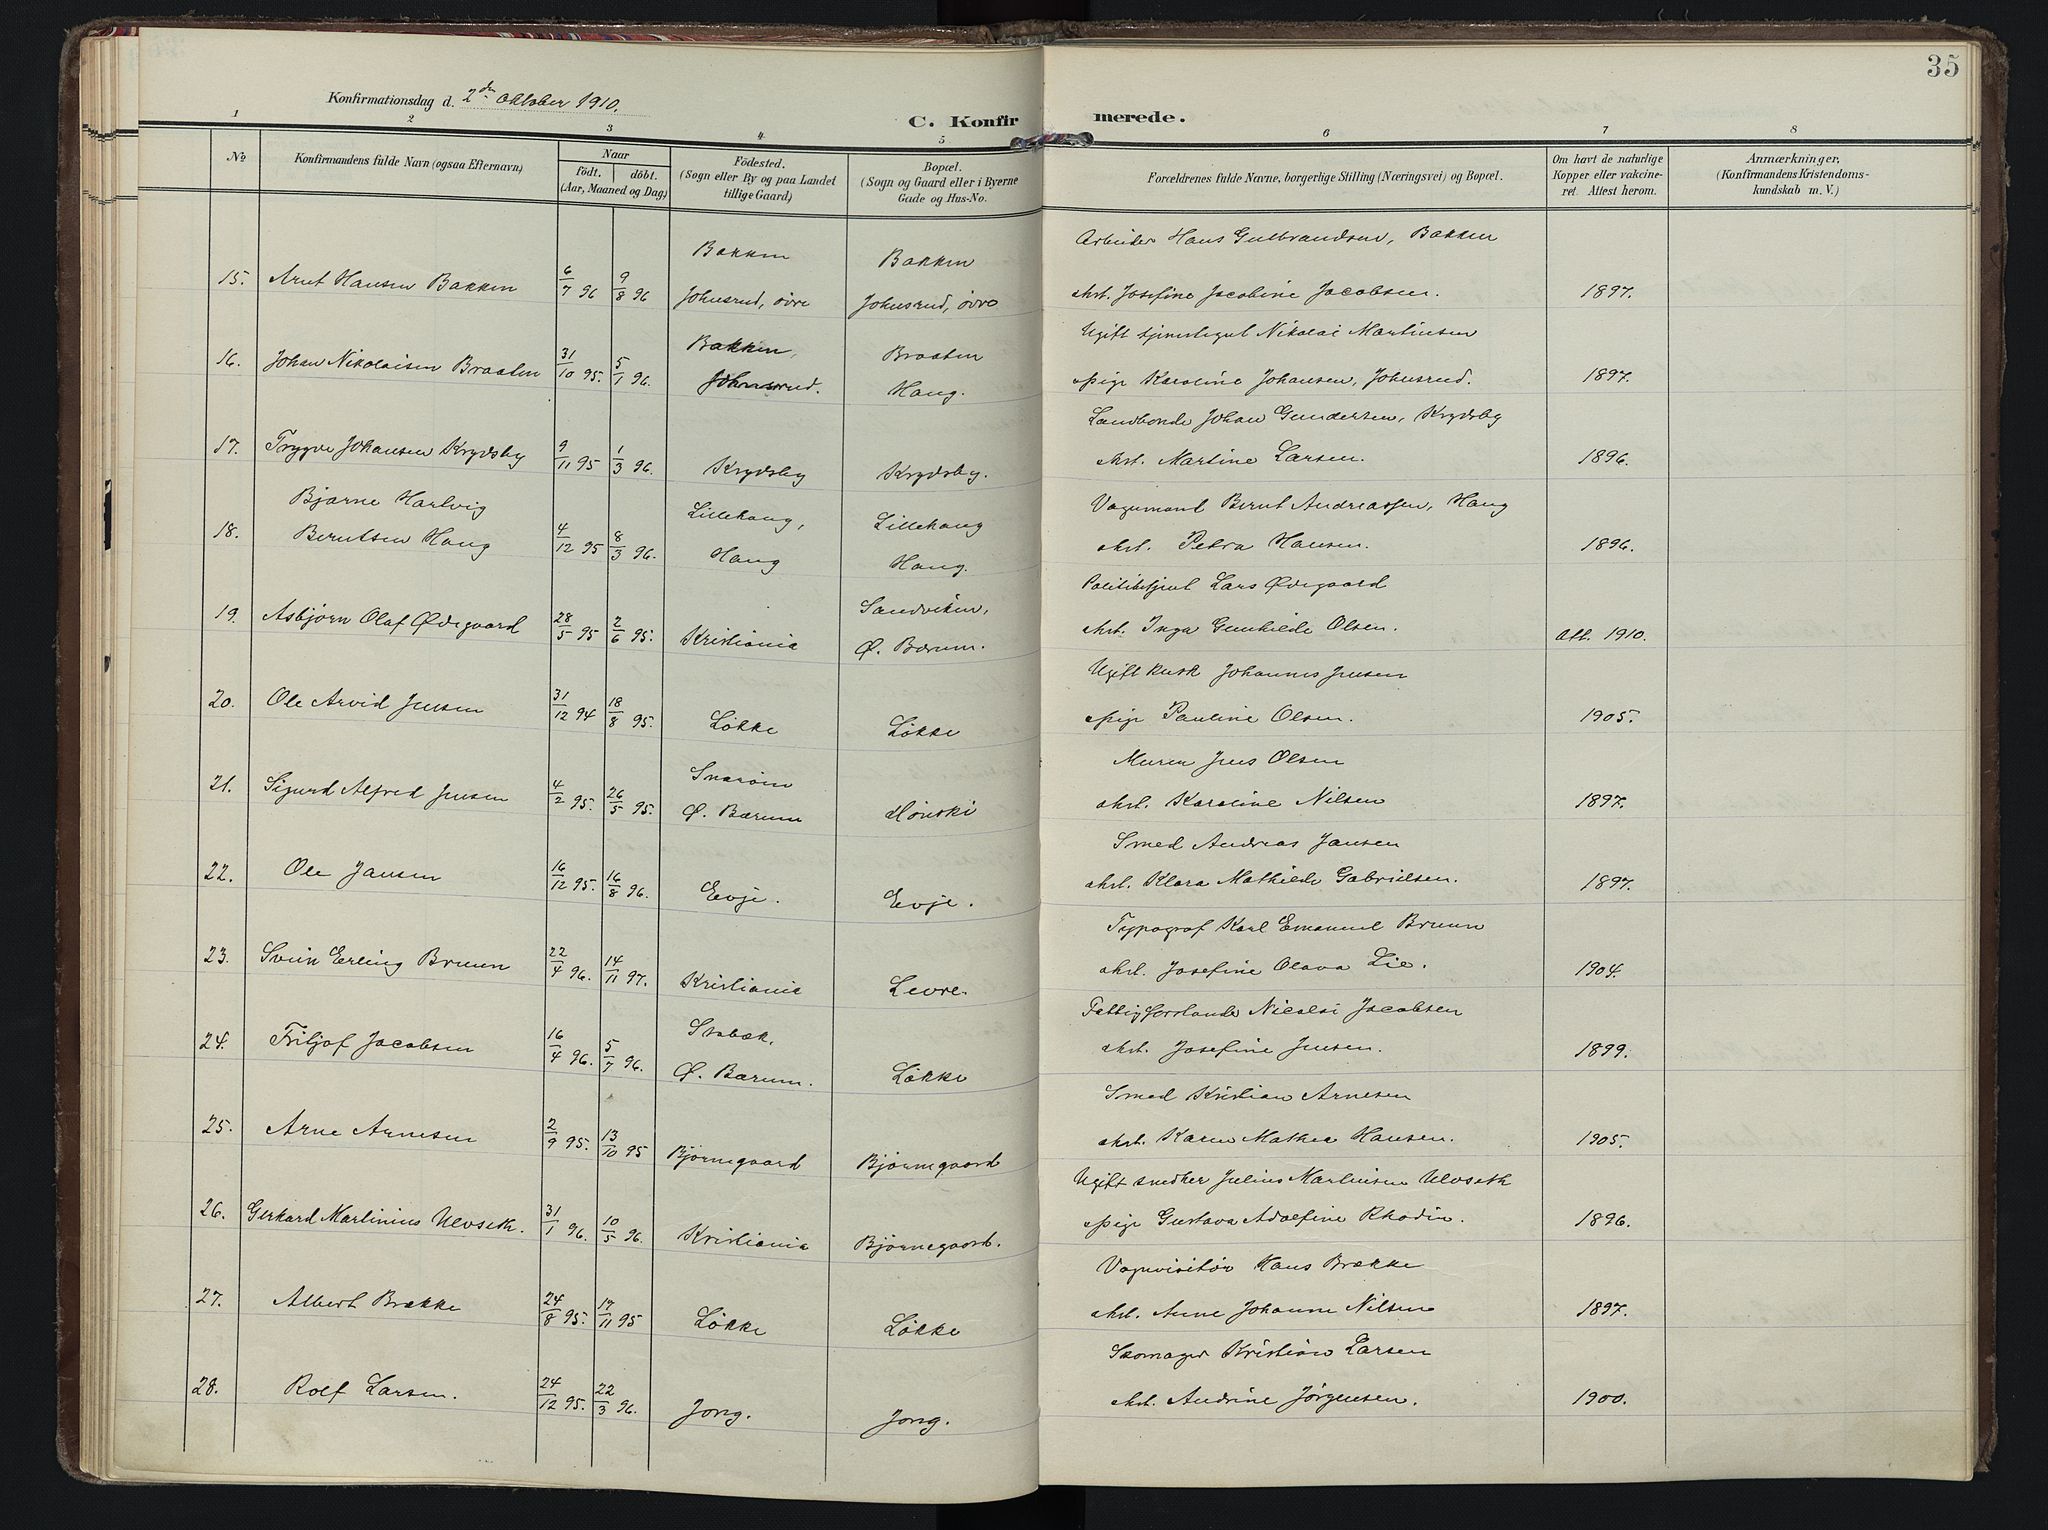 35
Konfirmationsdag d. 2den Oktober 1910.
C. Konfirmerede.
1 2 3 4 5 6 7 8
No
Konfirmandens fulde Navn (ogsaa Efternavn)
Naar
födt. döbt.
(Aar, Maaned og Dag)
Födested.
(Sogn eller By og paa Landet
tillige Gaard)
Bopæl.
(Sogn og Gaard eller i Byerne
Gade og Hus-No.
Forældrenes fulde Navne, borgerlige Stilling (Næringsvei) og Bopæl.
Om havt de naturlige
Kopper eller vakcine-
ret. Attest herom.
Anmærkninger,
(Konfirmandens Kristendoms-
kundskab m. V.)
Bakken Bakken Arbeider Hans Gulbrandsen, Bakken
15. Arnt Hansen Bakken 6/7 96 9/8 96 Johnsrud, øvre Johnsrud, øvre Hst. Josefine Jacobine Jacobsen. 1897.
Bakken, Braaten Ugift tjenestegut Nikolai Martinsen
16. Johan Nikolaisen Braaten 31/10 95. 5/1 96. Johnsrud. Haug. Pige Karoline Johansen, Johnsrud. 1897.
Landbonde Johan Gundersen, Krydsby
17. Trygve Johansen Krydsby 9/11 95 1/3 96. Krydsby Krydsby. Hst. Martine Larsen. 1896.
Bjarne Hartvig Lillehaug, Lillehaug Vognmand Bernt Andreassen, Haug
18. Berntsen Haug 4/12 95 8/3 96. Haug Haug. Hst. Petra Hansen. 1896.
Sandviken, Politibetjent Lars Ødegaard
19. Asbjörn Olaf Ødegaard 28/5 95 2/6 95. Kristiania Ø. Bærum. Hst. Inga Gunhilde Olsen. Att. 1910.
Ugift kusk Johannes Jensen
20. Ole Arvid Jensen 31/12 94 18/8 95. Løkke Løkke Pige Pauline Olsen. 1905.
Snarøen Murer Jens Olsen
21. Sigurd Alfred Jensen 4/2 95. 26/5 95. Ø. Bærum Hønski Hst. Karoline Nilsen 1897.
Smed Andreas Jansen
22. Ole Jansen 16/12 95. 16/8 96. Evje. Evje. Hst. Klara Mathilde Gabrielsen. 1897.
Typograf Karl Emanuel Bruun
23. Svein Erling Bruun 22/4 96. 14/11 97. Kristiania Levre. Hst. Josefine Olava Lie. 1904.
Stabæk. Fattigforstander Nicolai Jacobsen
24. Fritjof Jacobsen 16/4 96. 5/7 96. Ø. Bærum. Løkke Hst. Josefine Jensen. 1899.
Smed Kristian Arnesen
25. Arne Arnesen 2/9 95. 13/10 95 Bjørnegaard Bjørnegaard Hst. Karen Mathea Hansen. 1905.
Ugift snedker Julius Martinsen Ulvseth
26. Gerhard Martinius Ulvseth. 31/1 96. 10/5 96. Kristiania Bjørnegaard. Pige Gustava Adolfine Rhodin. 1896.
Vognvisitør Hans Brække
27. Albert Brække 24/8 95. 17/11 95 Løkke Løkke Hst. Anne Johanne Nilsen 1897.
Skomager Kristian Larsen
28. Rolf Larsen. 24/12 95. 22/3 96. Jong. Jong. Hst. Andrine Jørgensen. 1900.